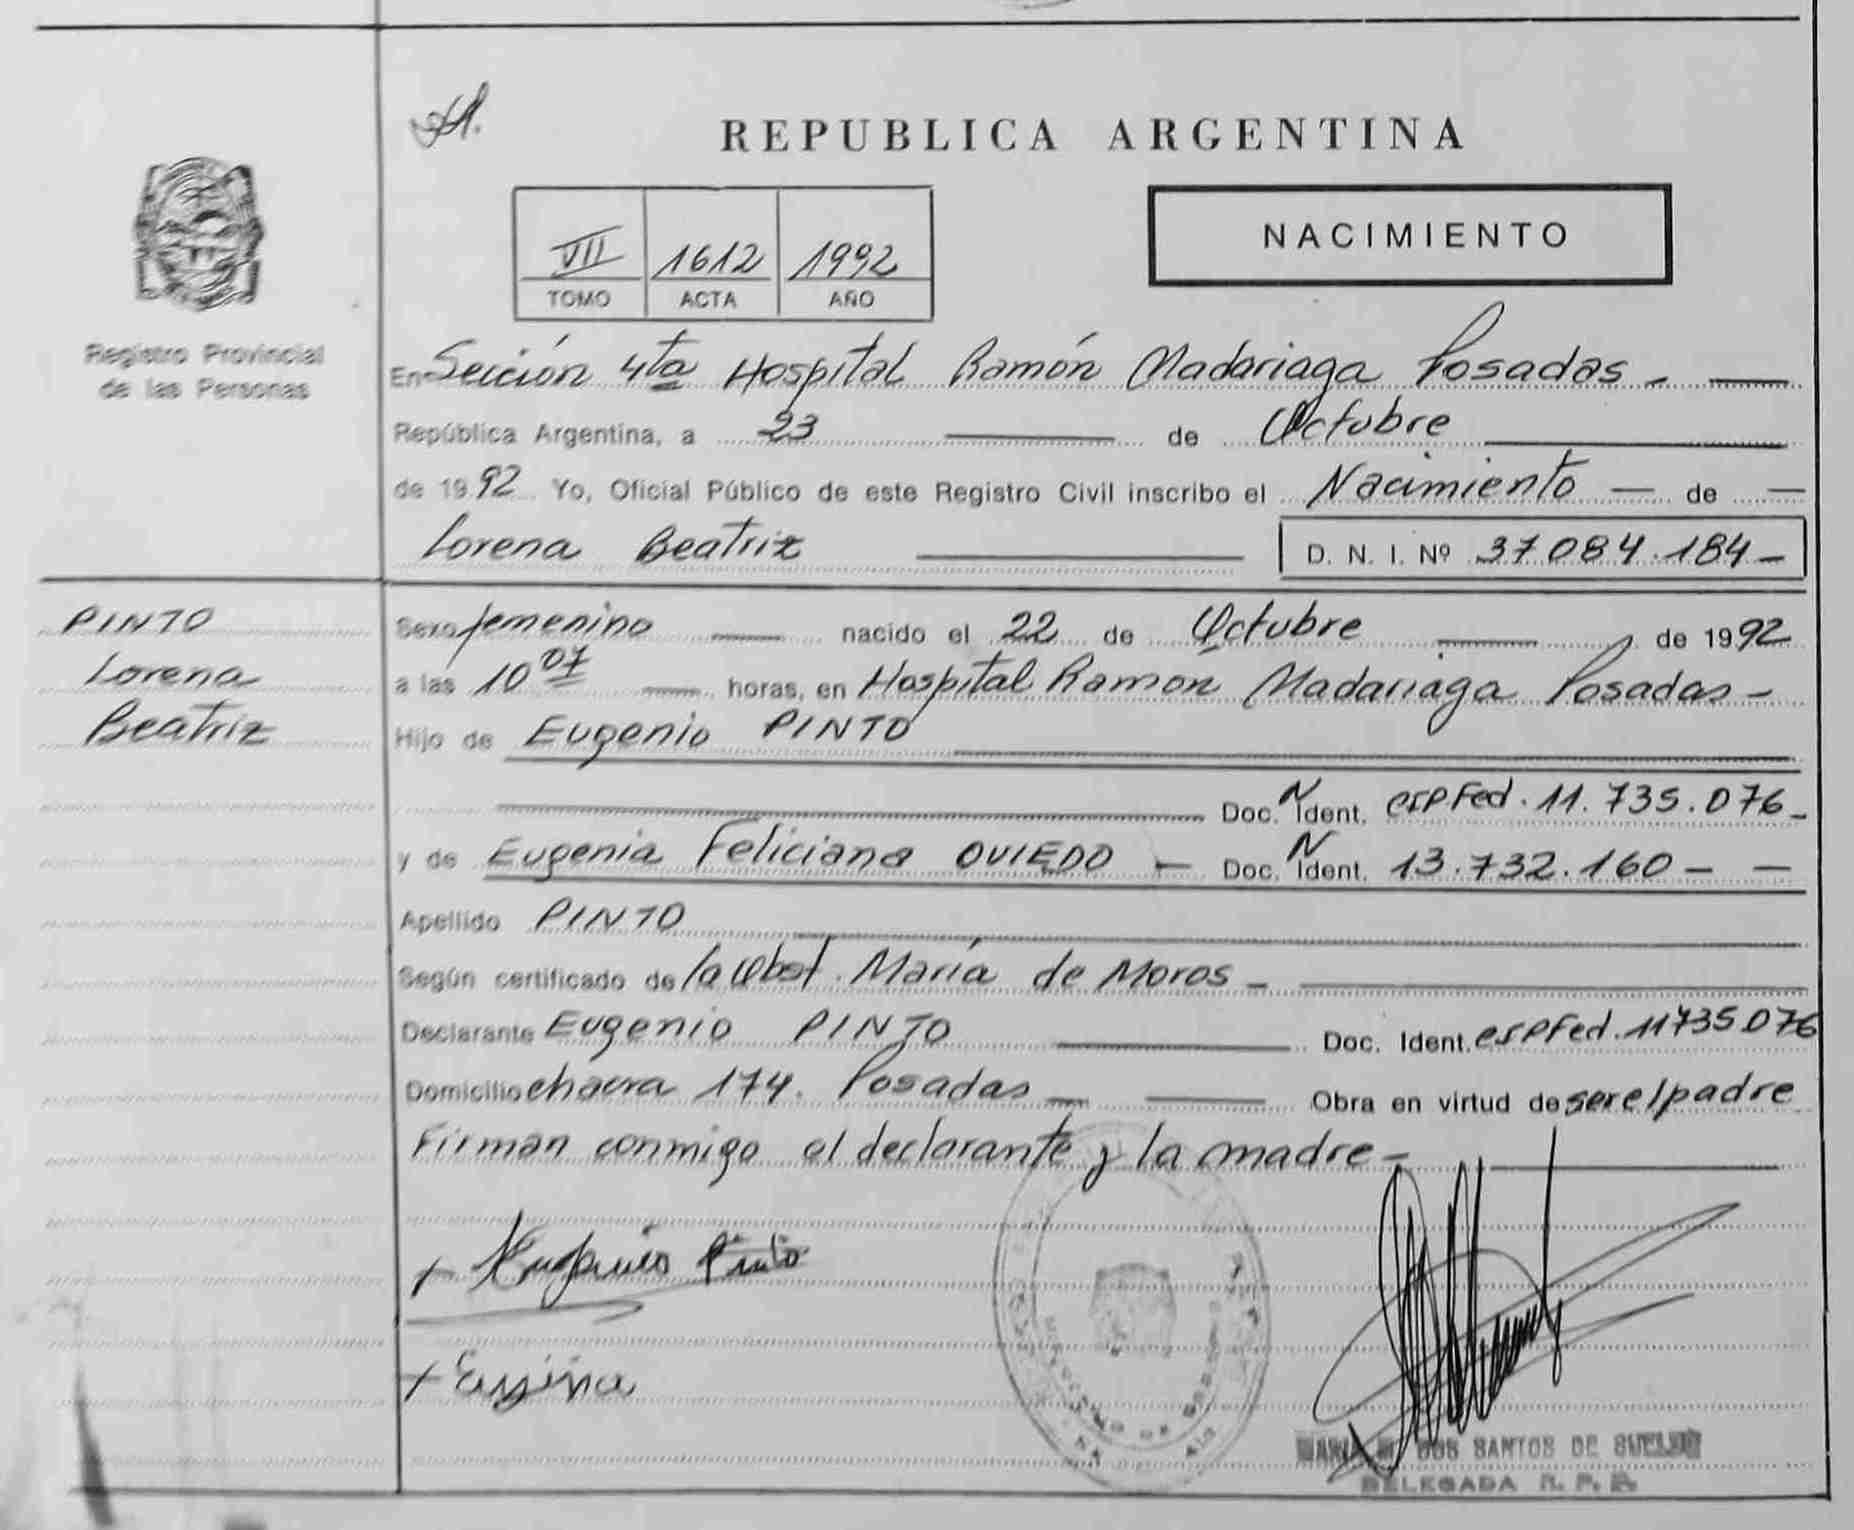 REPUBLICA ARGENTINA
Registro Provincial
de las Personas
VII 1612 1992
TOMO ACTA AÑO
NACIMIENTO
En Seición 4ta Hospital Ramón Madariaga Posadas -
República Argentina, a 23 de Octubre
de 1992 Yo, Oficial Público de este Registro Civil inscribo el Nacimiento de
Lorena Beatriz D. N. I. Nº 37.084.184 -
PINTO
Lorena
Beatriz
Sexo femenino nacido el 22 de Octubre de 1992
a las 10 07 horas, en Hospital Ramón Madariaga Posadas -
Hijo de Eugenio PINTO
Doc. N Ident. esp Fed. 11.735.076 -
y de Eugenia Feliciana OVIEDO - Doc. N Ident. 13.732.160 - -
Apellido PINTO
Según certificado de la Obst. María de Moros -
Declarante Eugenio PINTO Doc. Ident. esp Fed. 11735076
Domicilio chacra 174. Posadas Obra en virtud de ser el padre
Firman conmigo el declarante y la madre -
+ Eugenio Pinto
+
DOS SANTOS DE
DELEGADA R. P. P.